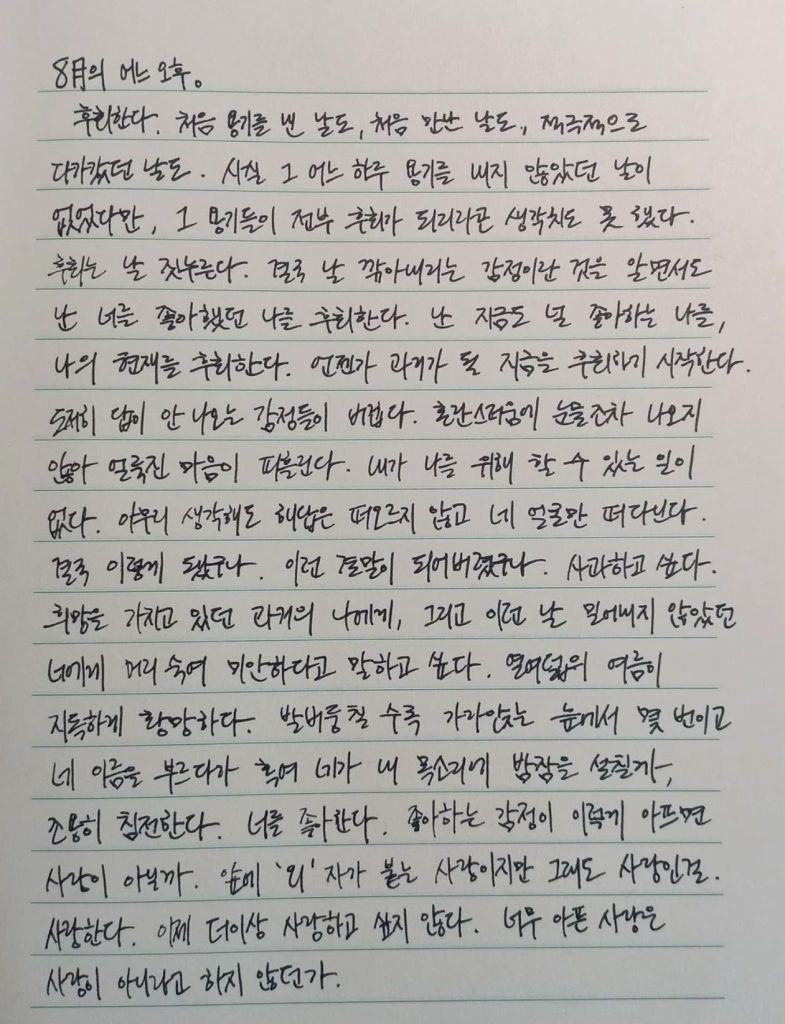 8月의 어느 오후。
후회한다. 처음 용기를 낸 날도, 처음 만난 날도, 적극적으로
다가갔던 날도. 사실 그 어느 하루 용기를 내지 않았던 날이
없었다만, 그 용기들이 전부 후회가 되리라곤 생각치도 못 했다.
후회는 날 짓누른다. 결국 날 깎아내리는 감정이란 것을 알면서도
난 너를 좋아했던 나를 후회한다. 난 지금도 널 좋아하는 나를,
나의 현재를 후회한다. 언젠가 과거가 될 지금을 후회하기 시작한다.
도저히 답이 안 나오는 감정들이 버겁다. 혼란스러움에 눈물조차 나오지
않아 얼룩진 마음이 피흘린다. 내가 나를 위해 할 수 있는 일이
없다. 아무리 생각해도 해답은 떠오르지 않고 네 얼굴만 떠다닌다.
결국 이렇게 됐구나. 이런 결말이 되어버렸구나. 사과하고 싶다.
희망을 가지고 있던 과거의 나에게, 그리고 이런 날 밀어내지 않았던
너에게 머리 숙여 미안하다고 말하고 싶다. 열여덟의 여름이
지독하게 황망하다. 발버둥칠 수록 가라앉는 늪에서 몇 번이고
네 이름을 부르다가 혹여 네가 내 목소리에 밤잠을 설칠까,
조용히 침전한다. 너를 좋아한다. 좋아하는 감정이 이렇게 아프면
사랑이 아닐까. 앞에 '외' 자가 붙는 사랑이지만 그래도 사랑인걸.
사랑한다. 이제 더이상 사랑하고 싶지 않다. 너무 아픈 사랑은
사랑이 아니라고 하지 않던가.